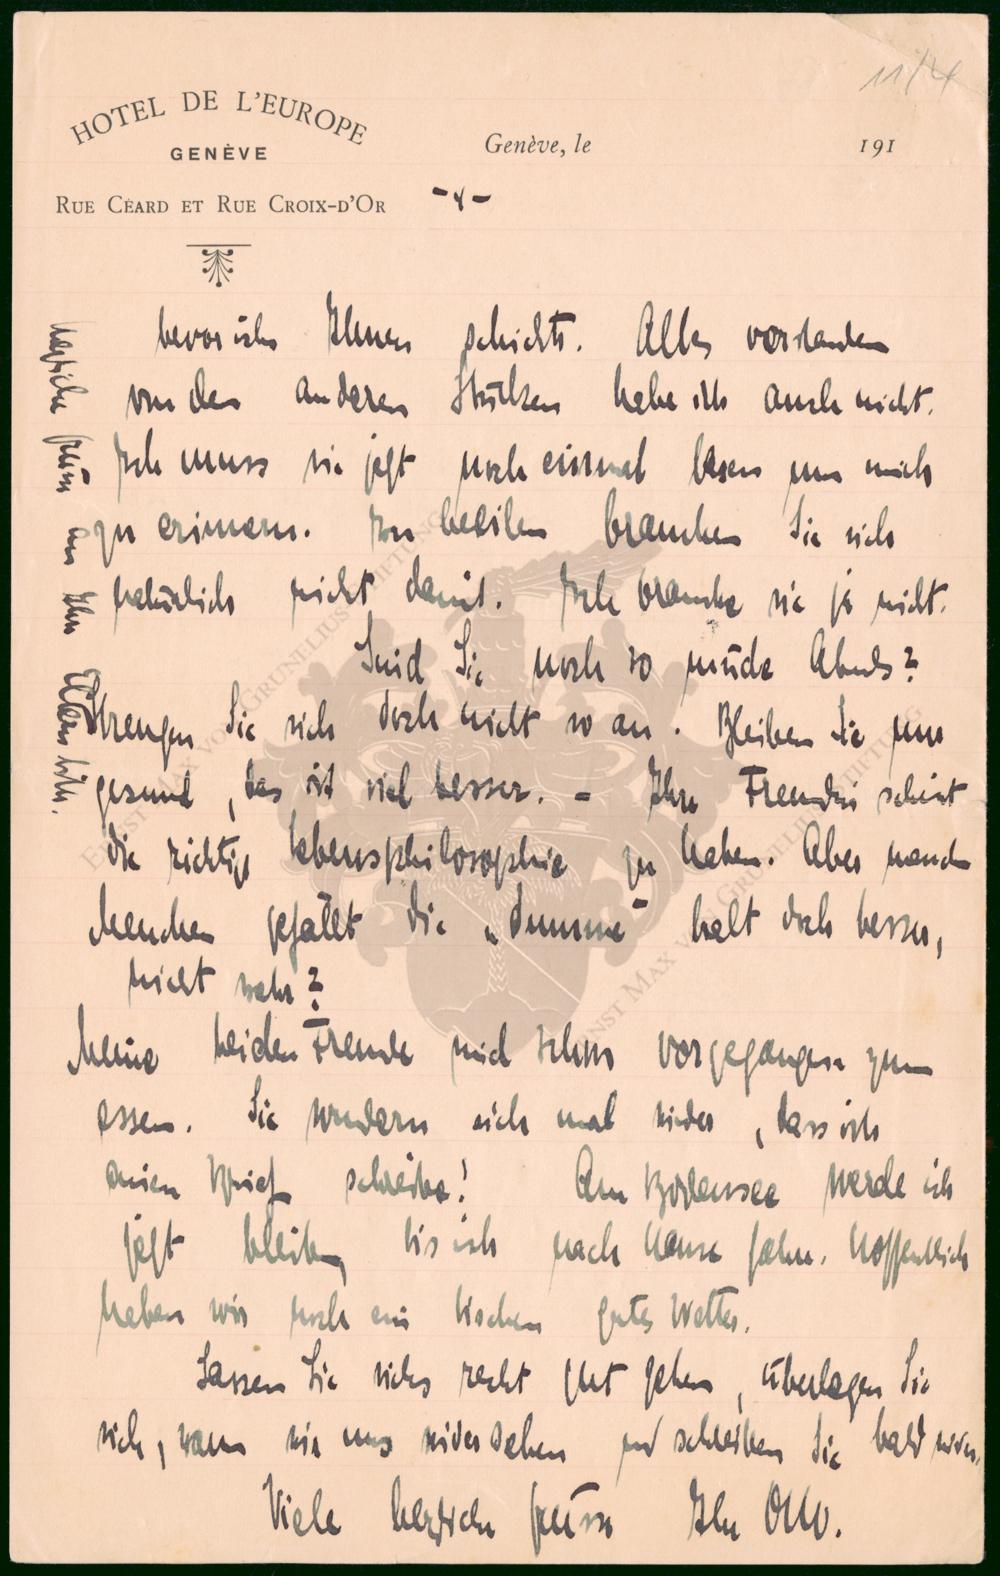 11/24
HOTEL DE L'EUROPE
GENÈVE
RUE CÉARD ET RUE CROIX-D'OR
Genève, le 191
- 4 -
bevor ich Ihnen schickte. Alles vorstanden
von den anderen Stücken habe ich auch nicht.
Ich muss sie jetzt noch einmal lesen um mich
zu erinnern. Zu beeilen brauchen Sie sich
natürlich nicht damit. Ich brauche sie ja nicht.
Sind Sie noch so müde Abends?
Strengen Sie sich doch nicht so an. Bleiben Sie nur
gesund, das ist viel besser. - Ihre Freundin scheint
die richtige Lebensphilosophie zu haben. Aber manch
Menschen gefällt die „Dumme" halt doch besser,
nicht wahr?
Meine beiden Freunde sind schon vorgegangen zum
essen. Sie wundern sich mal wieder, dass ich
einen Brief schreibe! Am Bodensee werde ich
jetzt bleiben, bis ich nach Hause fahre. Hoffentlich
haben wir noch ein bischen gutes Wetter.
Lassen Sie sichs recht gut gehen, überlegen Sie
sich, wann wir uns wiedersehen und schreiben Sie bald wieder.
Viele herzliche Grüsse Ihr Otto.
herzliche Grüsse an Ihr
ERNST MAX VON GRUNELIUS STIFTUNG
ERNST MAX VON GRUNELIUS STIFTUNG